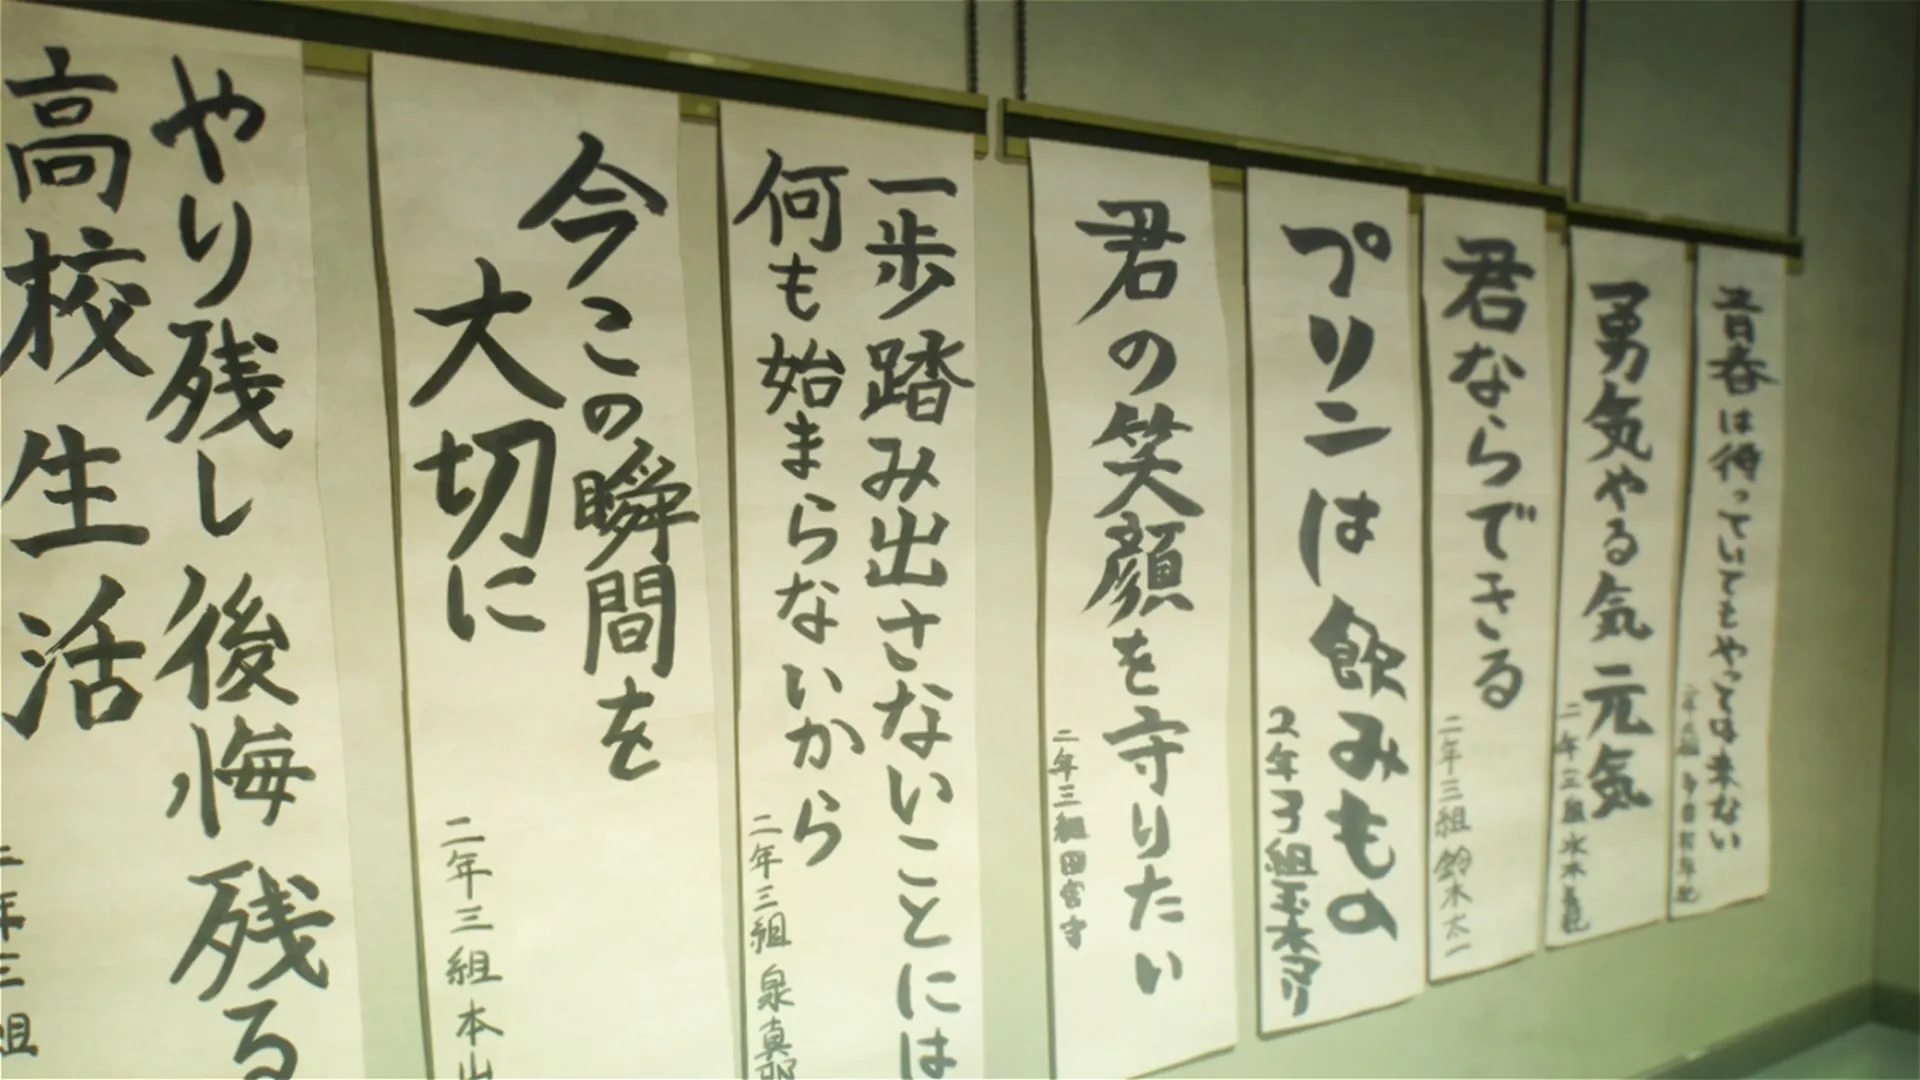 青春は待っていてもやっては来ない
勇気やる気元気
二年三組 水木
君ならできる
二年三組 鈴木太一
プリンは飲みもの
2年3組玉木マリ
君の笑顔を守りたい
二年三組田宮守
一歩踏み出さないことには
何も始まらないから
二年三組 泉真
今この瞬間を
大切に
二年三組 本山
やり残し後悔残る
高校生活
二年三組